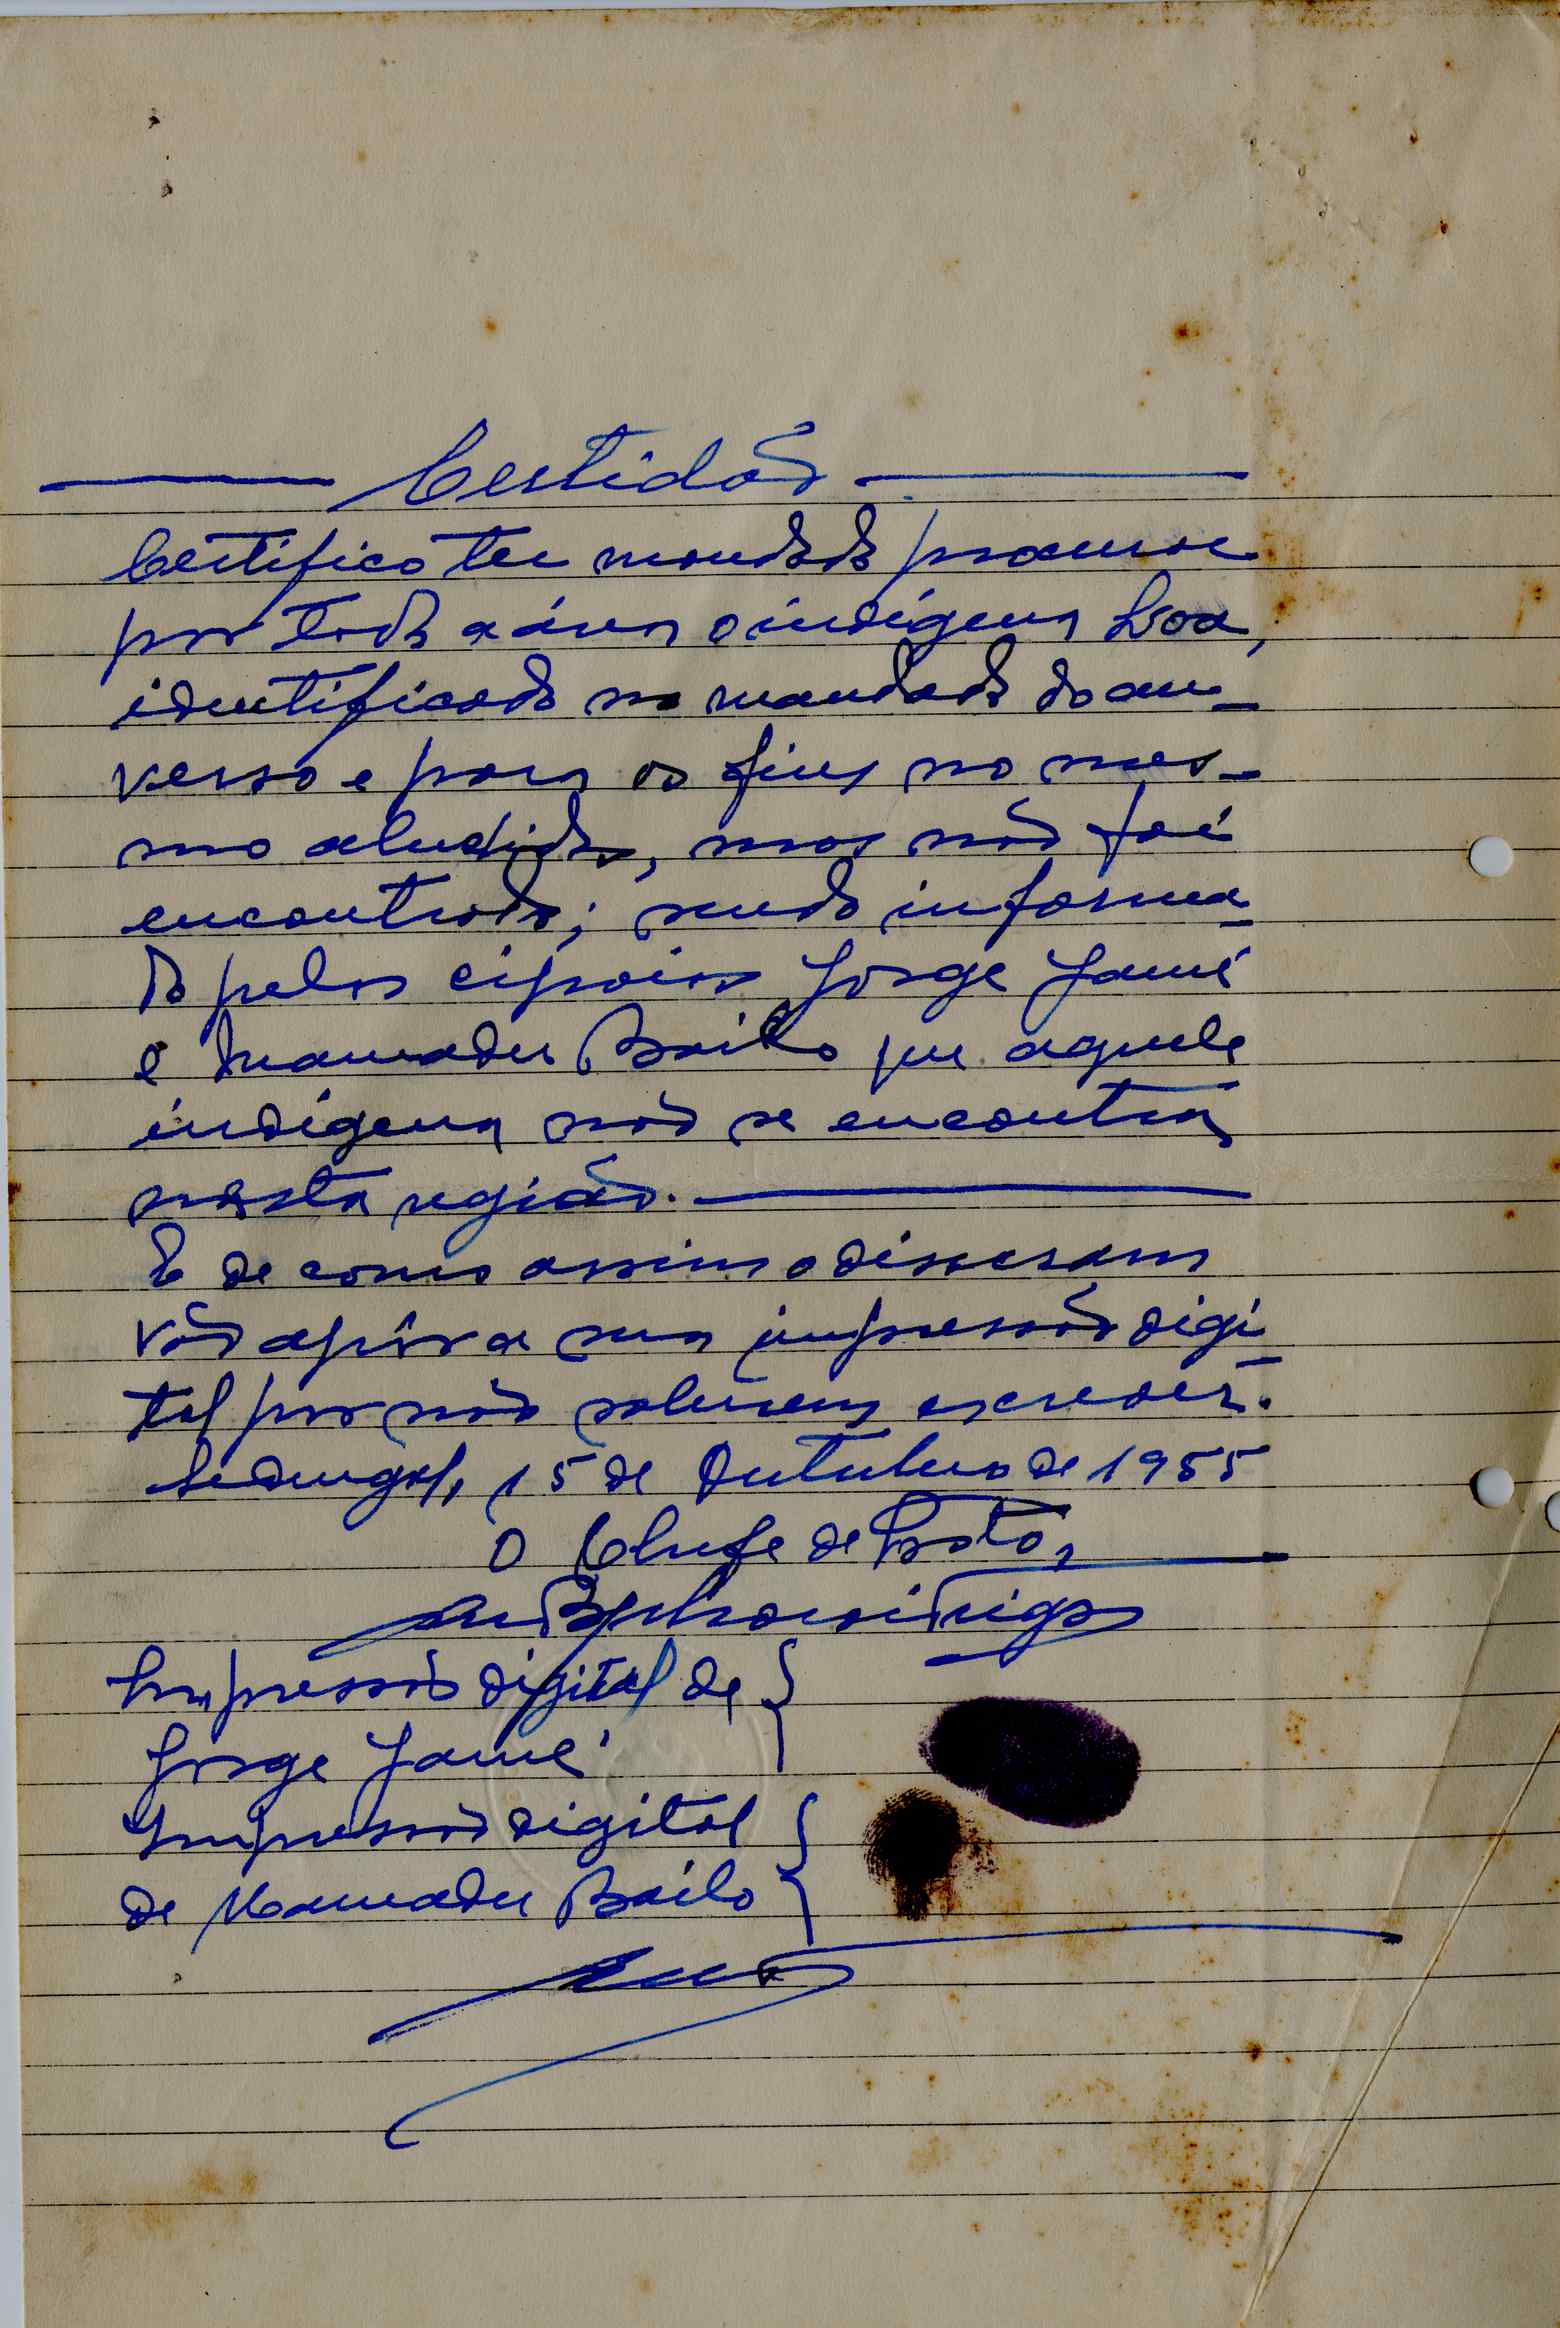 Certidão
Certifico ter mandado procurar
por toda a área o indígena Loa,
identificado no mandado do an-
verso e para os fins no mes-
mo aludidos, mas não foi
encontrado; sendo informa-
do pelos cipaios Jorge Jamé
e Mamadu Bailo que aquele
indígena não se encontra
nesta região.
E de como assim o disseram
vão apôr a sua impressão digi
tal por não saberem escrever.
15 de Outubro de 1955
O Chefe de Posto,
Impressão digital de
Jorge Jamé
Impressão digital
de Mamadu Bailo